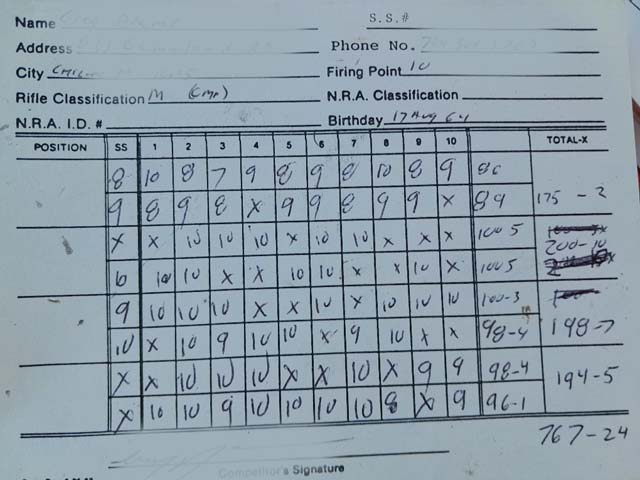 Name S.S.#
Address Phone No.
City Firing Point 10
Rifle Classification M (CMP) N.R.A. Classification
N.R.A. I.D. # Birthday 17 Aug 64
POSITION SS 1 2 3 4 5 6 7 8 9 10 TOTAL-X
8 10 8 7 9 8 9 8 10 8 9 86
9 8 9 8 X 9 9 8 9 9 X 89 175-2
X X 10 10 10 X 10 10 X X X 100 5 200-10
10 10 X X 10 10 X X 10 X 100 5
9 10 10 10 X X 10 X 10 10 10 100-3
10 X 10 9 10 10 X 9 10 X X 98-4 198-7
X X 10 10 10 X X 10 X 9 9 98-4 194-5
X 10 10 9 10 10 10 10 8 X 9 96-1
767-24
Competitor's Signature